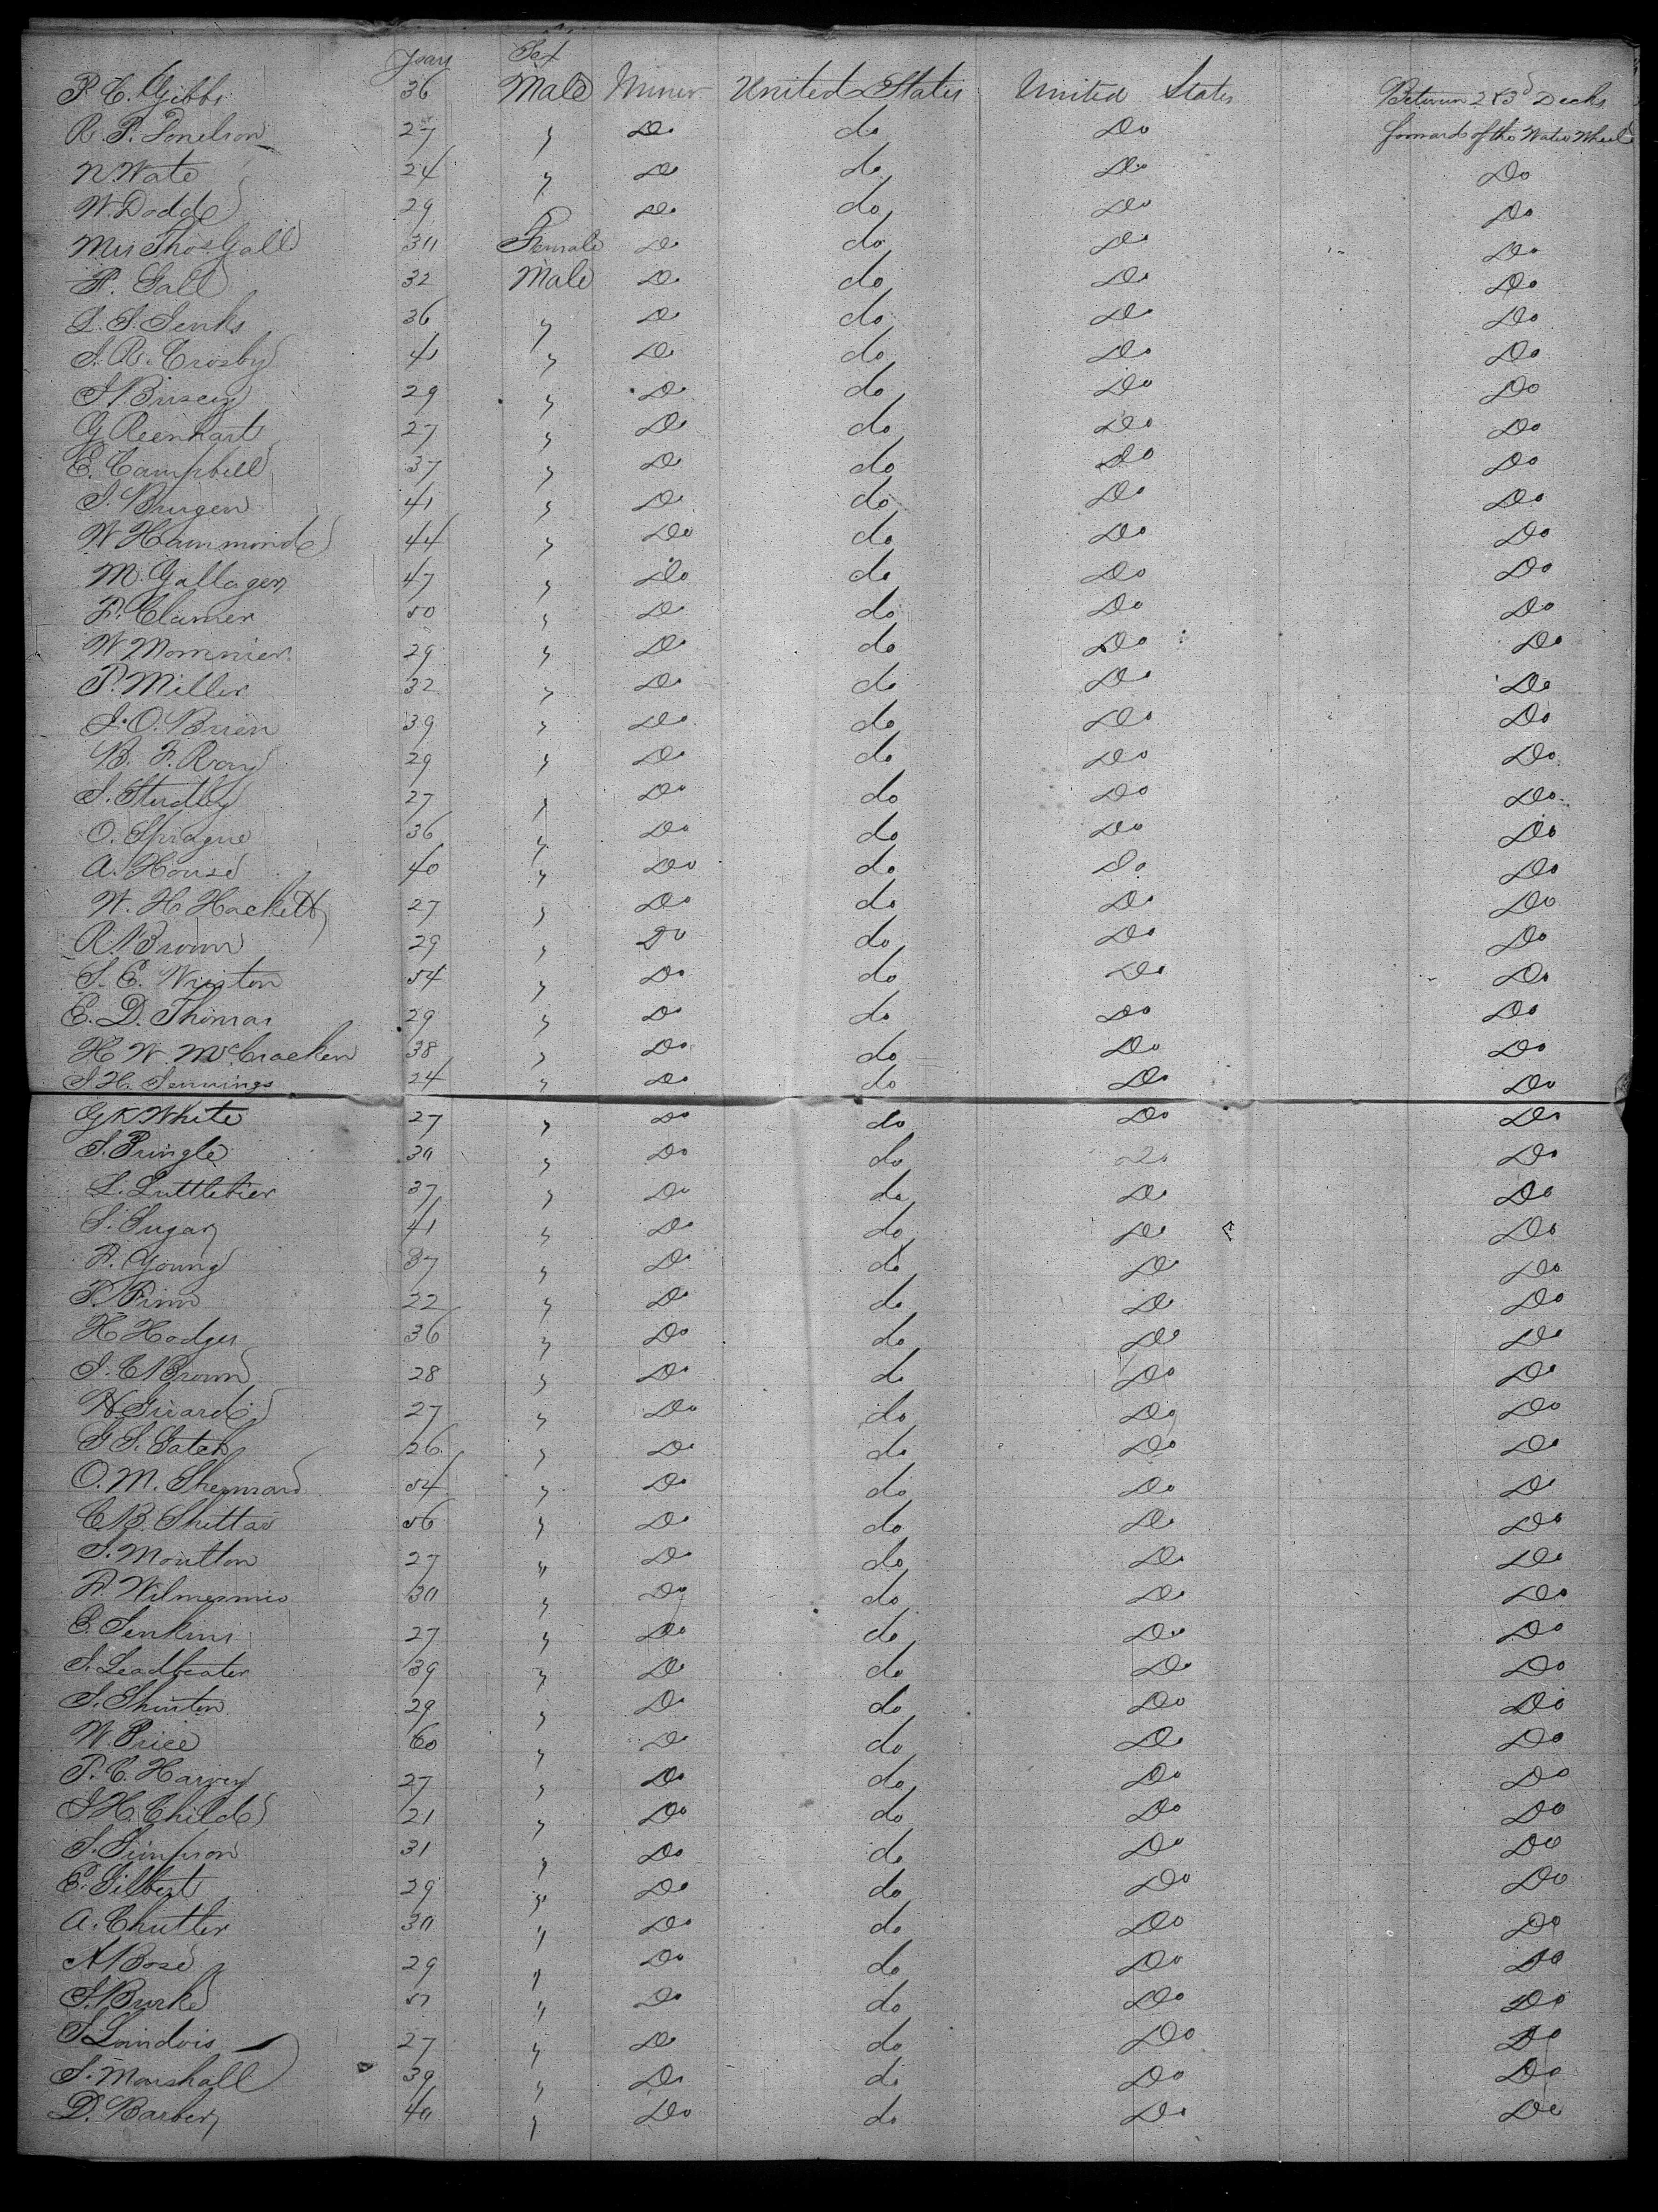 Years Sex
P. C. Gibbs 36 Male Miner United States United States Between 2 & 3d Decks
R. P. Donelson 27 " Do do Do forward of the Water Wheel
N Wate 24 " Do do Do Do
W. Dodd 29 " Do do Do Do
Mrs Thos Gall 30 Female Do do Do Do
F. Gall 32 Male Do do Do Do
L. S. Jenks 36 " Do do Do Do
J. R. Crosby 41 " Do do Do Do
J. Busey 29 " Do do Do Do
G Reenhart 27 " Do do Do Do
E. Campbell 37 " Do do Do Do
J. Brugen 41 " Do do Do Do
W Hammond 44 " Do do Do Do
M. Gallager 47 " Do do Do Do
F. Clamer 50 " Do do Do Do
W Mommier 29 " Do do Do Do
P. Miller 32 " Do do Do Do
J. O. Brien 39 " Do do Do Do
B. F. Ray 29 " Do do Do Do
S. Studley 27 " Do do Do Do
O. Sprague 36 " Do do Do Do
A. House 40 " Do do Do Do
W. H Hackett 27 " Do do Do Do
R Brown 29 " Do do Do Do
S. E. Winston 54 " Do do Do Do
E. D. Thomas 29 " Do do Do Do
H W McCracken 38 " Do do Do Do
J H. Jennings 24 " Do do Do Do
G K White 27 " Do do Do Do
J. Pringle 30 " Do do Do Do
L. Luttletier 37 " Do do Do Do
S. Sugar 41 " Do do Do Do
F. Young 37 " Do do Do Do
P. Finn 22 " Do do Do Do
H Hodges 36 " Do do Do Do
J. C Brown 28 " Do do Do Do
H. Girard 27 " Do do Do Do
G S. Gates 26 " Do do Do Do
O. M. Shennard 54 " Do do Do Do
C. B. 56 " Do do Do Do
J. Moulton 27 " Do do Do Do
F. 30 " Do do Do Do
E. Jenkins 27 " Do do Do Do
J. Leadbeater 39 " Do do Do Do
J. Shinton 29 " Do do Do Do
W. Price 60 " Do do Do Do
P. C. Harvey 27 " Do do Do Do
J H. Child 21 " Do do Do Do
J. Simpson 31 " Do do Do Do
E. Gilbert 29 " Do do Do Do
A. Chutler 30 " Do do Do Do
A Bose 29 " Do do Do Do
J. Burke 57 " Do do Do Do
J Landois 27 " Do do Do Do
J. Marshall 39 " Do do Do Do
D. Barber 40 " Do do Do Do